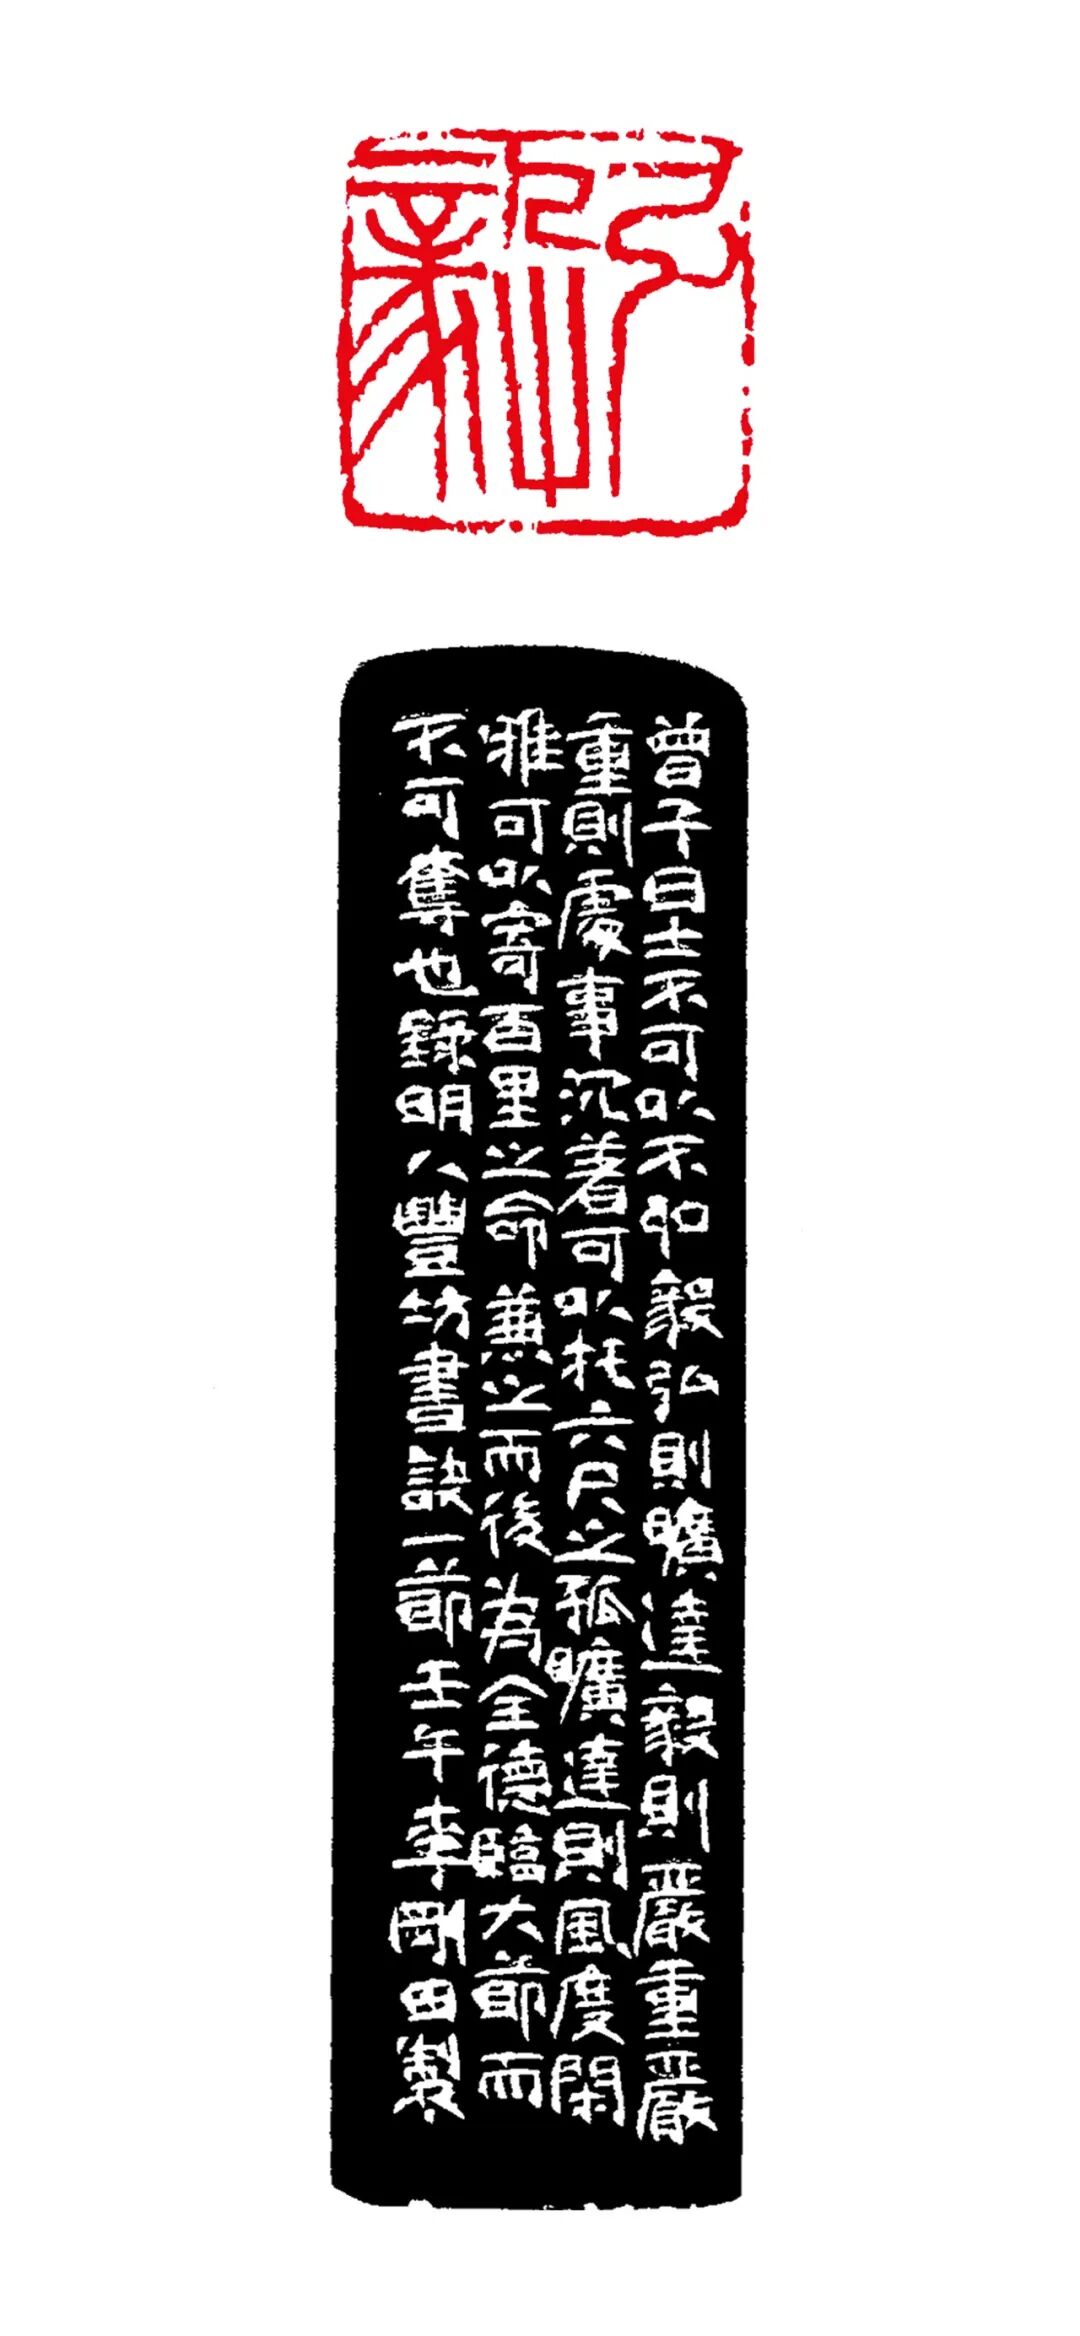 曾子曰士不可以不弘毅弘則曠達毅則嚴重嚴
重則處事沉著可以托六尺之孤曠達則風度閑
雅可以寄百里之命兼之而後為全德臨大節而
不可奪也錄明人豐坊書訣一節壬午李剛田製